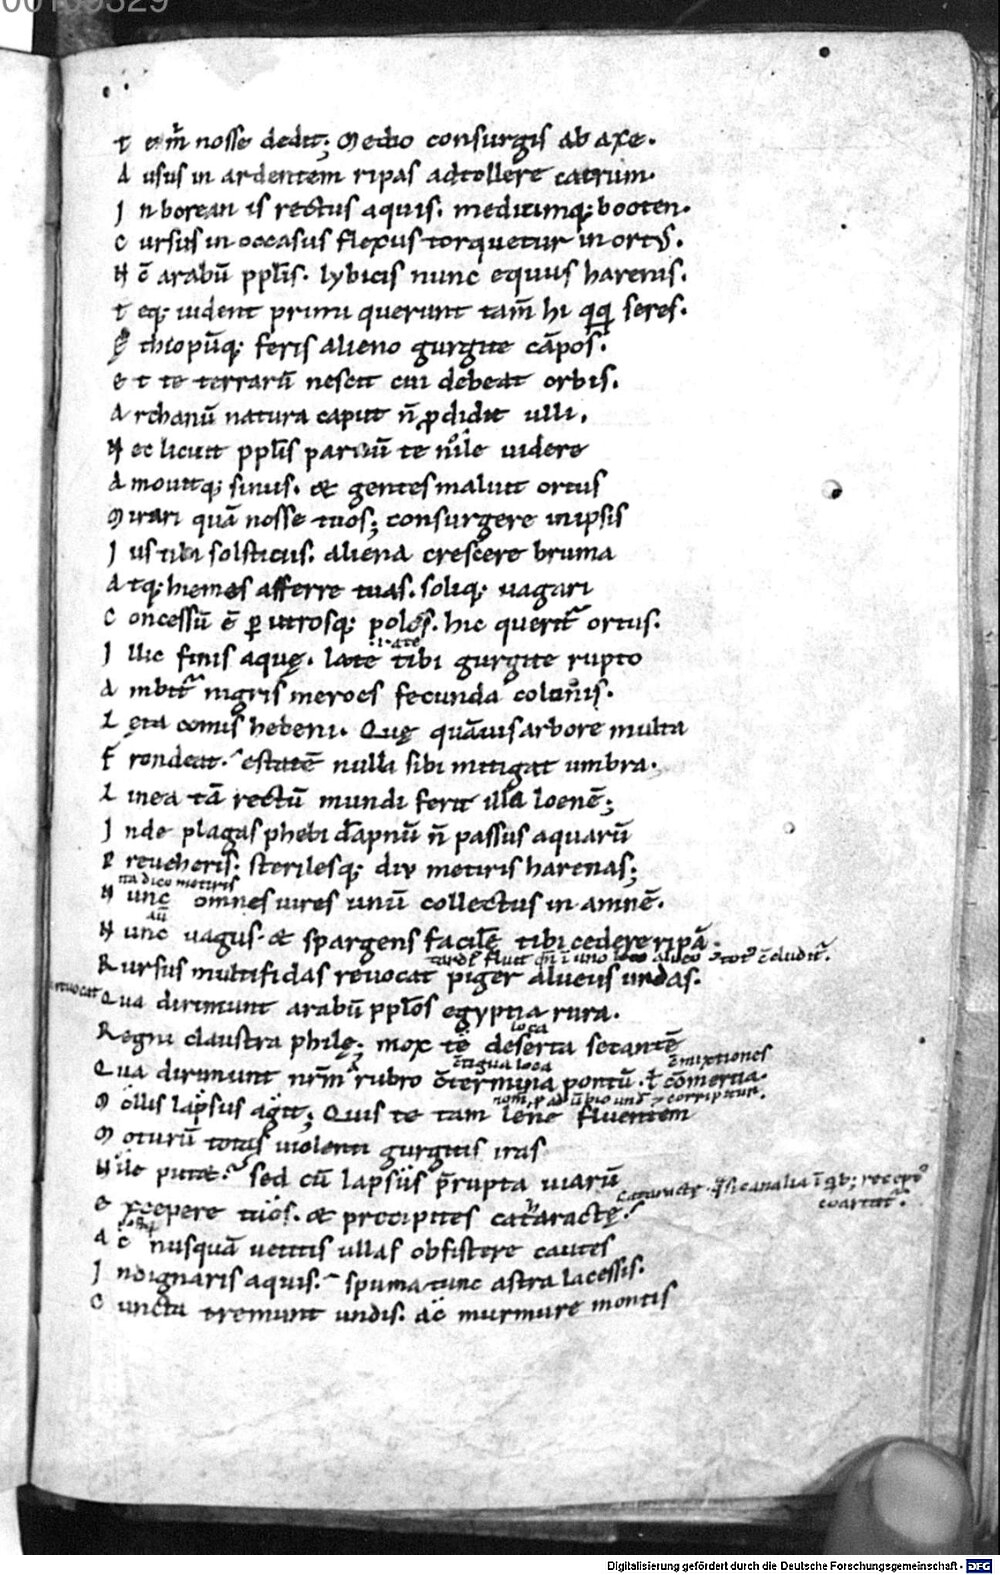 00109329
T em̄ nosse dedit; Medio consurgis ab axe.
A usus in ardentem ripas adtollere cancrum.
I n borean is rectus aquis. mediumq; booten.
C ursus in occasus flexus torquetur in ortus.
N c̄ arabū ppl̄is. lybicis nunc equus harenis.
T eq; uident primi querunt tam̄ hi qq; seres.
E thiopūq; feris alieno gurgite cāpos.
E t te terrarū nescit cui debeat orbis.
A rchanū natura caput n̄ p̄didit ulli.
N ec licuit ppl̄is paruū te nile uidere
A mouitq; sinus. & gentes maluit ortus
M irari quā nosse tuos; consurgere in ipsis
I us tibi solsticiis. aliena crescere bruma
A tq; hiemes afferre tuas. soliq; uagari
C oncessū ē p utrosq; polos. hic querit̄ ortus.
I llic finis aquę. late tibi gurgite rupto
A mbit̄ nigris meroes fecunda colonis.
L eta comis hebeni. Quę quāuis arbore multa
F rondeat. estatē nulla sibi mitigat umbra.
L inea tā rectū mundi ferit illa leonē;
I nde plagas phebi dāpnū n̄ passus aquarū
P reueheris. sterilesq; diu metiris harenas;
ita dico metiris
N unc omnes uires unū collectus in amnē.
au̅
N unc uagus. & spargens facilē tibi cedere ripā.
R ursus multifidas reuocat piger alueus undas.
reuocat
Q ua dirimunt arabū ppl̄os egyptia rura.
loca
R egni claustra philę; mox te deserta secantē
c̄tigua loca
Q ua dirimunt nr̄m rubro c̄termina pontū. ł cōmertia.
M ollis lapsus agit; Quis te tam lene fluentem
M oturū totas uiolenti gurgitis iras
N ile putat. sed cū lapsus p̄rupta uiarū
E xcepere tuos. & precipites cataractę.
A c nusquā uetitis ullas obsistere cautes
I ndignaris aquis. spuma tunc astra lacessis.
C uncta tremunt undis. ac murmure montis
Digitalisierung gefördert durch die Deutsche Forschungsgemeinschaft - DFG